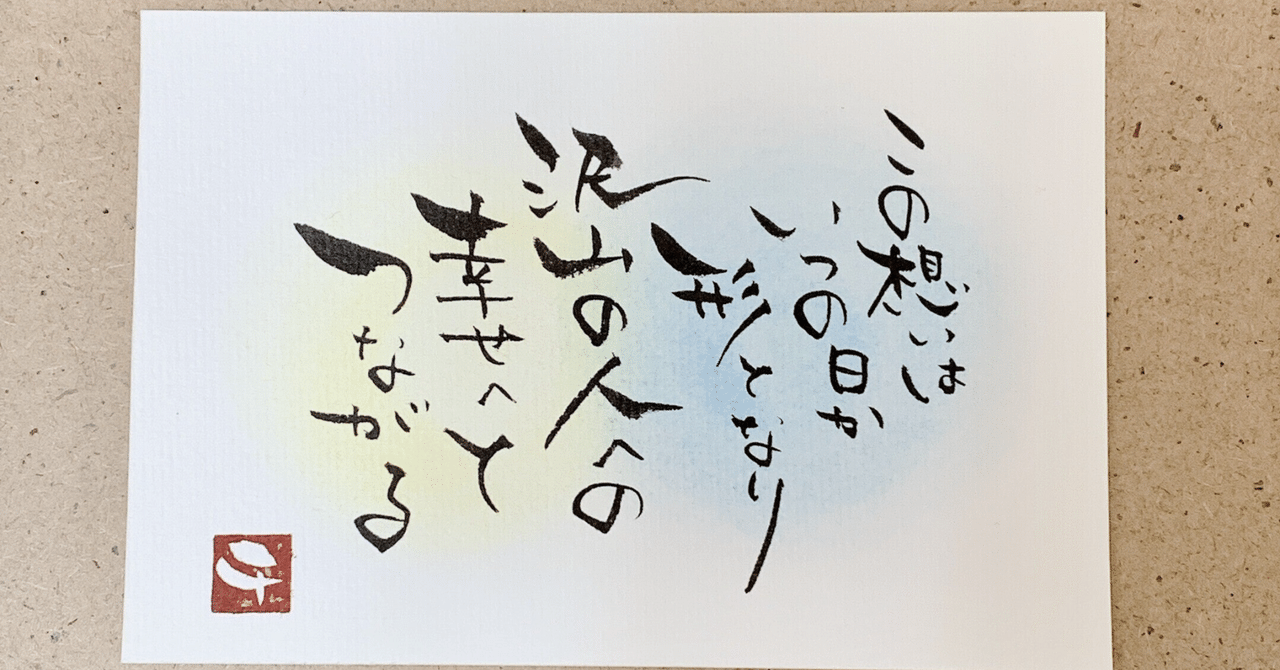 この想いは
いつの日か
形となり
沢山の人への
幸せへと
つながる